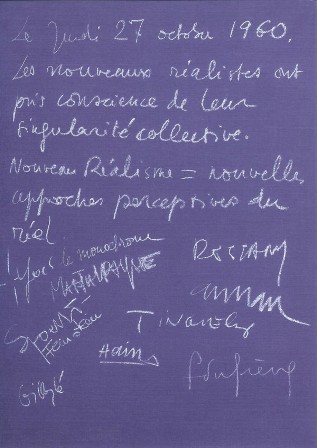 Le Jeudi 27 octobre 1960.
Les nouveaux réalistes ont
pris conscience de leur
singularité collective.
Nouveau Réalisme = nouvelles
approches perceptives du
réel
Yves le monochrome
RESTANY
arman
TINGUELY
Hains
f dufrêne